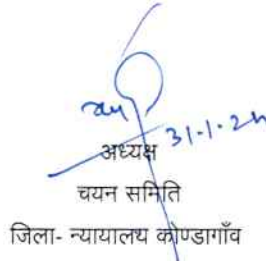 31.1.24
अध्यक्ष
चयन समिति
जिला- न्यायालय कोण्डागाँव